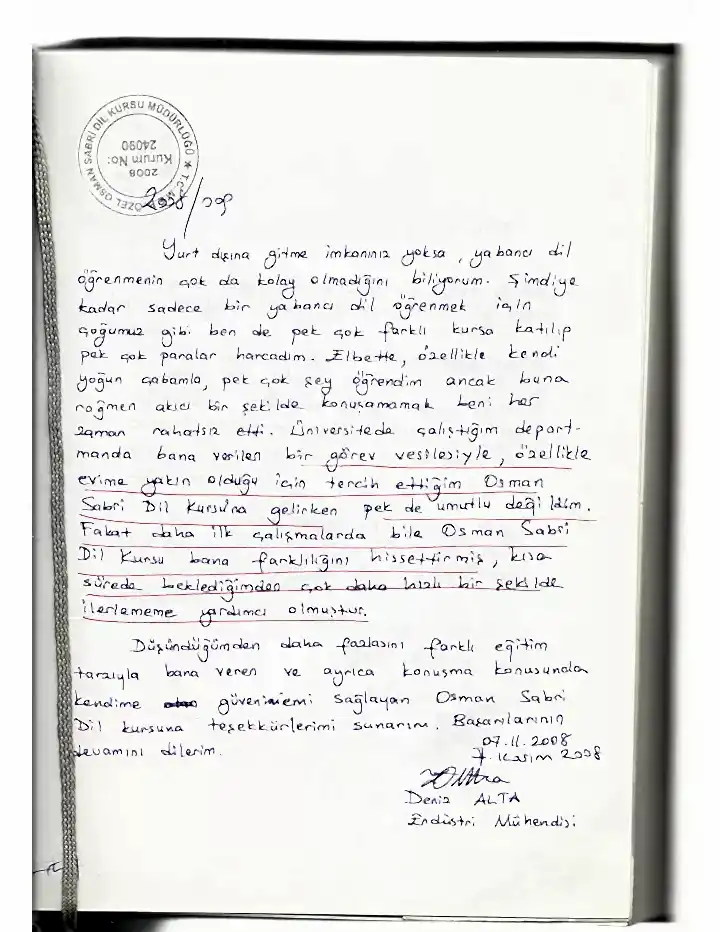 T.C. M. ÖZEL OSMAN SABRİ DİL KURSU MÜDÜRLÜĞÜ ★
2008
Kurum No:
24090
Yurt dışına gitme imkanınız yoksa, yabancı dil
öğrenmenin çok da kolay olmadığını biliyorum. Şimdiye
kadar sadece bir yabancı dil öğrenmek için
çoğumuz gibi ben de pek çok farklı kursa katılıp
pek çok paralar harcadım. Elbette, özellikle kendi
yoğun çabamla, pek çok şey öğrendim ancak buna
rağmen akıcı bir şekilde konuşamamak beni her
zaman rahatsız etti. Üniversitede çalıştığım depart-
manda bana verilen bir görev vesilesiyle, özellikle
evime yakın olduğu için tercih ettiğim Osman
Sabri Dil Kursu'na gelirken pek de umutlu değildim.
Fakat daha ilk çalışmalarda bile Osman Sabri
Dil Kursu bana farklılığını hissettirmiş, kısa
sürede beklediğimden çok daha hızlı bir şekilde
ilerlememe yardımcı olmuştur.
Düşündüğümden daha fazlasını farklı eğitim
tarzıyla bana veren ve ayrıca konuşma konusunda
kendime güvenimi sağlayan Osman Sabri
Dil kursuna teşekkürlerimi sunarım. Başarılarının
devamını dilerim.
07.11.2008
7. Kasım 2008
Deniz ALTA
Endüstri Mühendisi